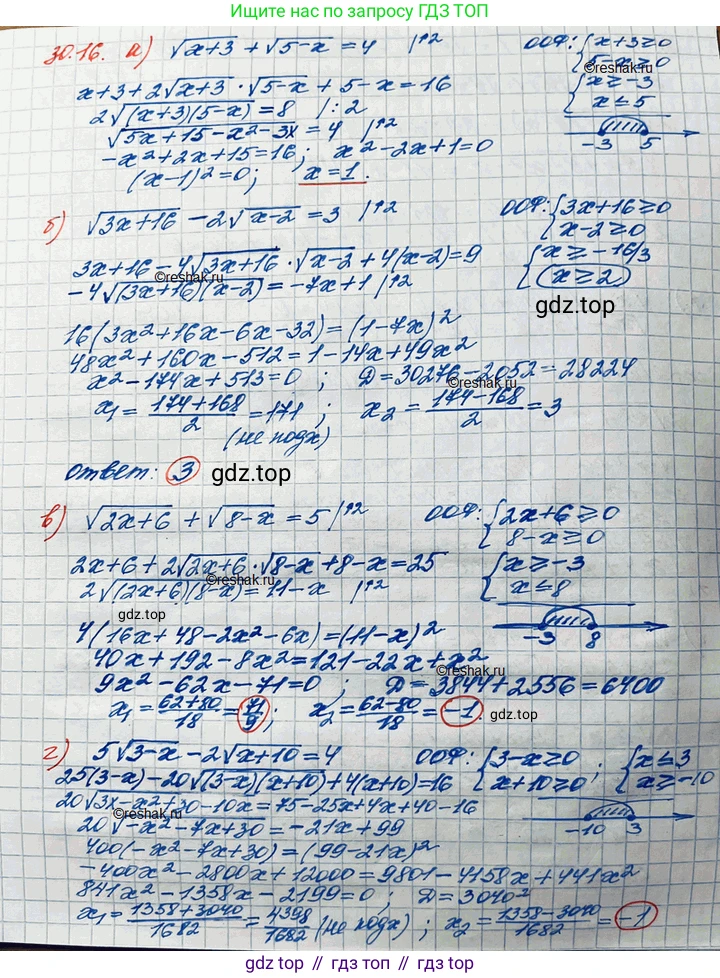 Ищите нас по запросу ГДЗ ТОП
30.16. а) √x+3 + √5-x = 4 |↑2 ООФ: {x+3≥0
{5-x≥0
x+3+2√x+3 · √5-x + 5-x = 16 {x≥-3
2√(x+3)(5-x) = 8 |:2 {x≤5
√5x+15-x²-3x = 4 |↑2
-x²+2x+15=16; x²-2x+1=0 -3 5
(x-1)²=0; x=1.
б) √3x+16 - 2√x-2 = 3 |↑2 ООФ: {3x+16≥0
{x-2≥0
3x+16-4√3x+16 · √x-2 + 4(x-2)=9 {x≥-16/3
©reshak.ru
-4√(3x+16)(x-2) = -7x+1 |↑2 {x≥2
gdz.top
16(3x²+16x-6x-32)=(1-7x)²
48x²+160x-512=1-14x+49x²
x²-174x+513=0; D=30276-2052=28224
©reshak.ru
x₁=(174+168)/2=171; x₂=(174-168)/2=3
(не подх)
ответ: 3
gdz.top
в) √2x+6 + √8-x = 5 |↑2 ООФ: {2x+6≥0
{8-x≥0
2x+6+2√2x+6 · √8-x + 8-x = 25 {x≥-3
©reshak.ru
2√(2x+6)(8-x) = 11-x |↑2 {x≤8
gdz.top
4(16x+48-2x²-6x)=(11-x)² -3 8
40x+192-8x²=121-22x+x²
©reshak.ru
9x²-62x-71=0; D=3844+2556=6400
x₁=(62+80)/18=71/9; x₂=(62-80)/18=-1.
г) 5√3-x - 2√x+10 = 4 ООФ: {3-x≥0 ; {x≤3
25(3-x)-20√(3-x)(x+10)+4(x+10)=16 {x+10≥0 {x≥-10
20√3x-x²+30-10x=75-25x+4x+40-16
20√-x²-7x+30=-21x+99 -10 3
400(-x²-7x+30)=(99-21x)²
-400x²-2800x+12000=9801-4158x+441x²
841x²-1358x-2199=0; D=3040²
x₁=(1358+3040)/1682=4398/1682 (не подх); x₂=(1358-3040)/1682=-1
gdz.top // гдз.топ // gdz.top // гдз.топ // gdz.top